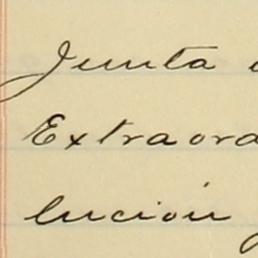 Junta
Extraora
lución